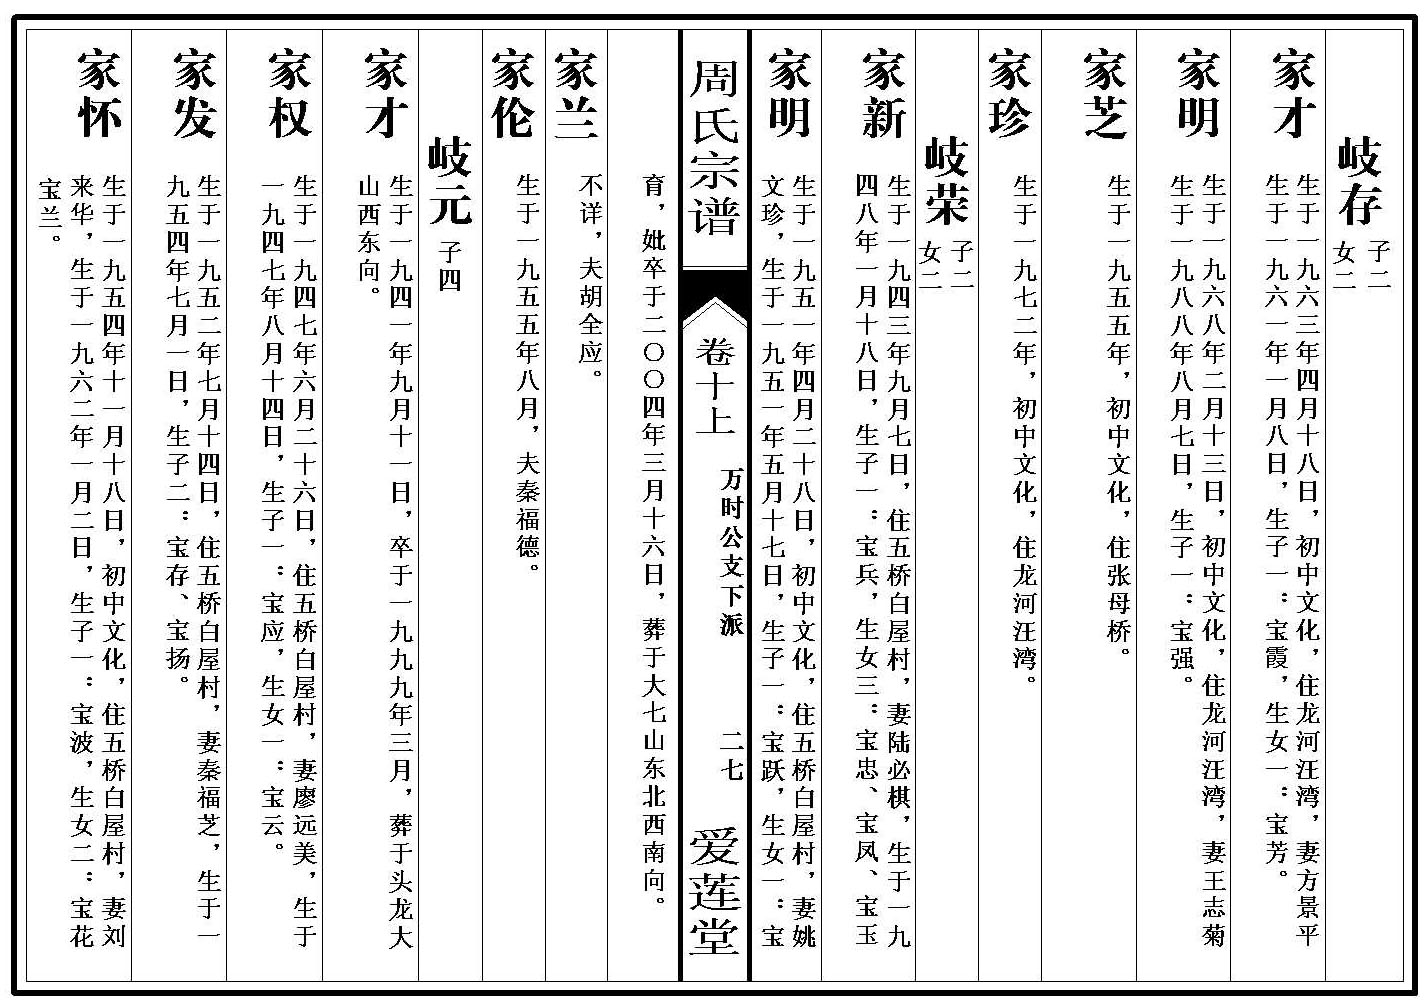 岐存
子二
女二
家才
生于一九六三年四月十八日，初中文化，住龙河汪湾，妻方景平
生于一九六一年一月八日，生子一：宝霞，生女一：宝芳。
家明
生于一九六八年二月十三日，初中文化，住龙河汪湾，妻王志菊
生于一九八八年八月七日，生子一：宝强。
家芝
生于一九五五年，初中文化，住张母桥。
家珍
生于一九七二年，初中文化，住龙河汪湾。
岐荣
子二
女二
家新
生于一九四三年九月七日，住五桥白屋村，妻陆必棋，生于一九
四八年一月十八日，生子一：宝兵，生女三：宝忠、宝凤、宝玉
家明
生于一九五一年四月二十八日，初中文化，住五桥白屋村，妻姚
文珍，生于一九五一年五月十七日，生子一：宝跃，生女一：宝
周氏宗谱
卷十上
万时公支下派
二七
爱莲堂
育，妣卒于二〇〇四年三月十六日，葬于大七山东北西南向。
家兰
不详，夫胡全应。
家伦
生于一九五五年八月，夫秦福德。
岐元
子四
家才
生于一九四一年九月十一日，卒于一九九九年三月，葬于头龙大
山西东向。
家权
生于一九四七年六月二十六日，住五桥白屋村，妻廖远美，生于
一九四七年八月十四日，生子一：宝应，生女一：宝云。
家发
生于一九五二年七月十四日，住五桥白屋村，妻秦福芝，生于一
九五四年七月一日，生子二：宝存、宝扬。
家怀
生于一九五四年十一月十八日，初中文化，住五桥白屋村，妻刘
来华，生于一九六二年一月二日，生子一：宝波，生女二：宝花
宝兰。